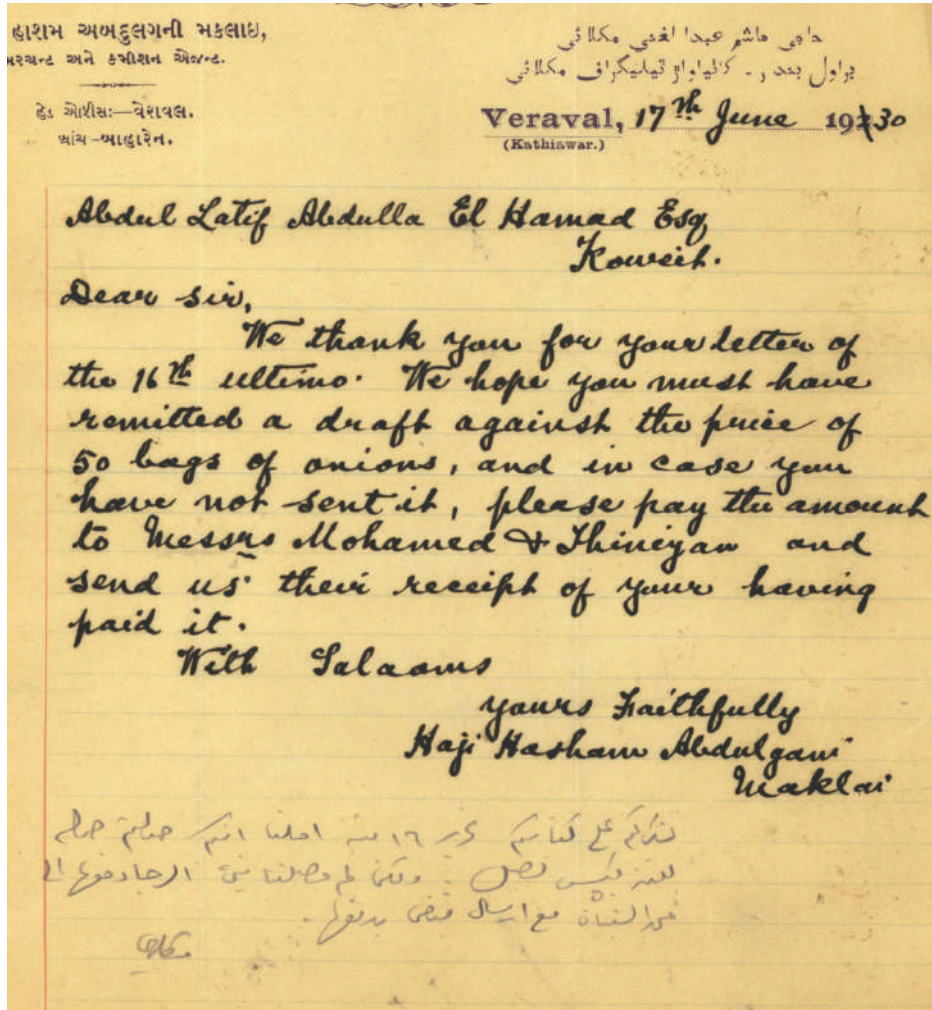 હાશમ અબદુલગની મકલાઇ,
મરચન્ટ અને કમીશન એજન્ટ.
હેડ ઓફીસઃ—વેરાવલ.
બ્રાંચ–બાહારેન.
حاجی هاشم عبدا لغنی مکلائی
براول بندر ۔ کاٹیاواڑ ٹیلیگراف مکلائی
Veraval, 17th June 19230
(Kathiawar.)
Abdul Latif Abdulla El Hamad Esq
Koweit.
Dear sir,
We thank you for your letter of
the 16th ultimo. We hope you must have
remitted a draft against the price of
50 bags of onions, and in case you
have not sent it, please pay the amount
to Messrs Mohamed & Thineyan and
send us their receipt of your having
paid it.
With Salaams
yours Faithfully
Haji Hasham Abdulgani
Maklai
على كتابكم ١٦ منه املنا انكم
بصل . ولكن لم
مع ارسال